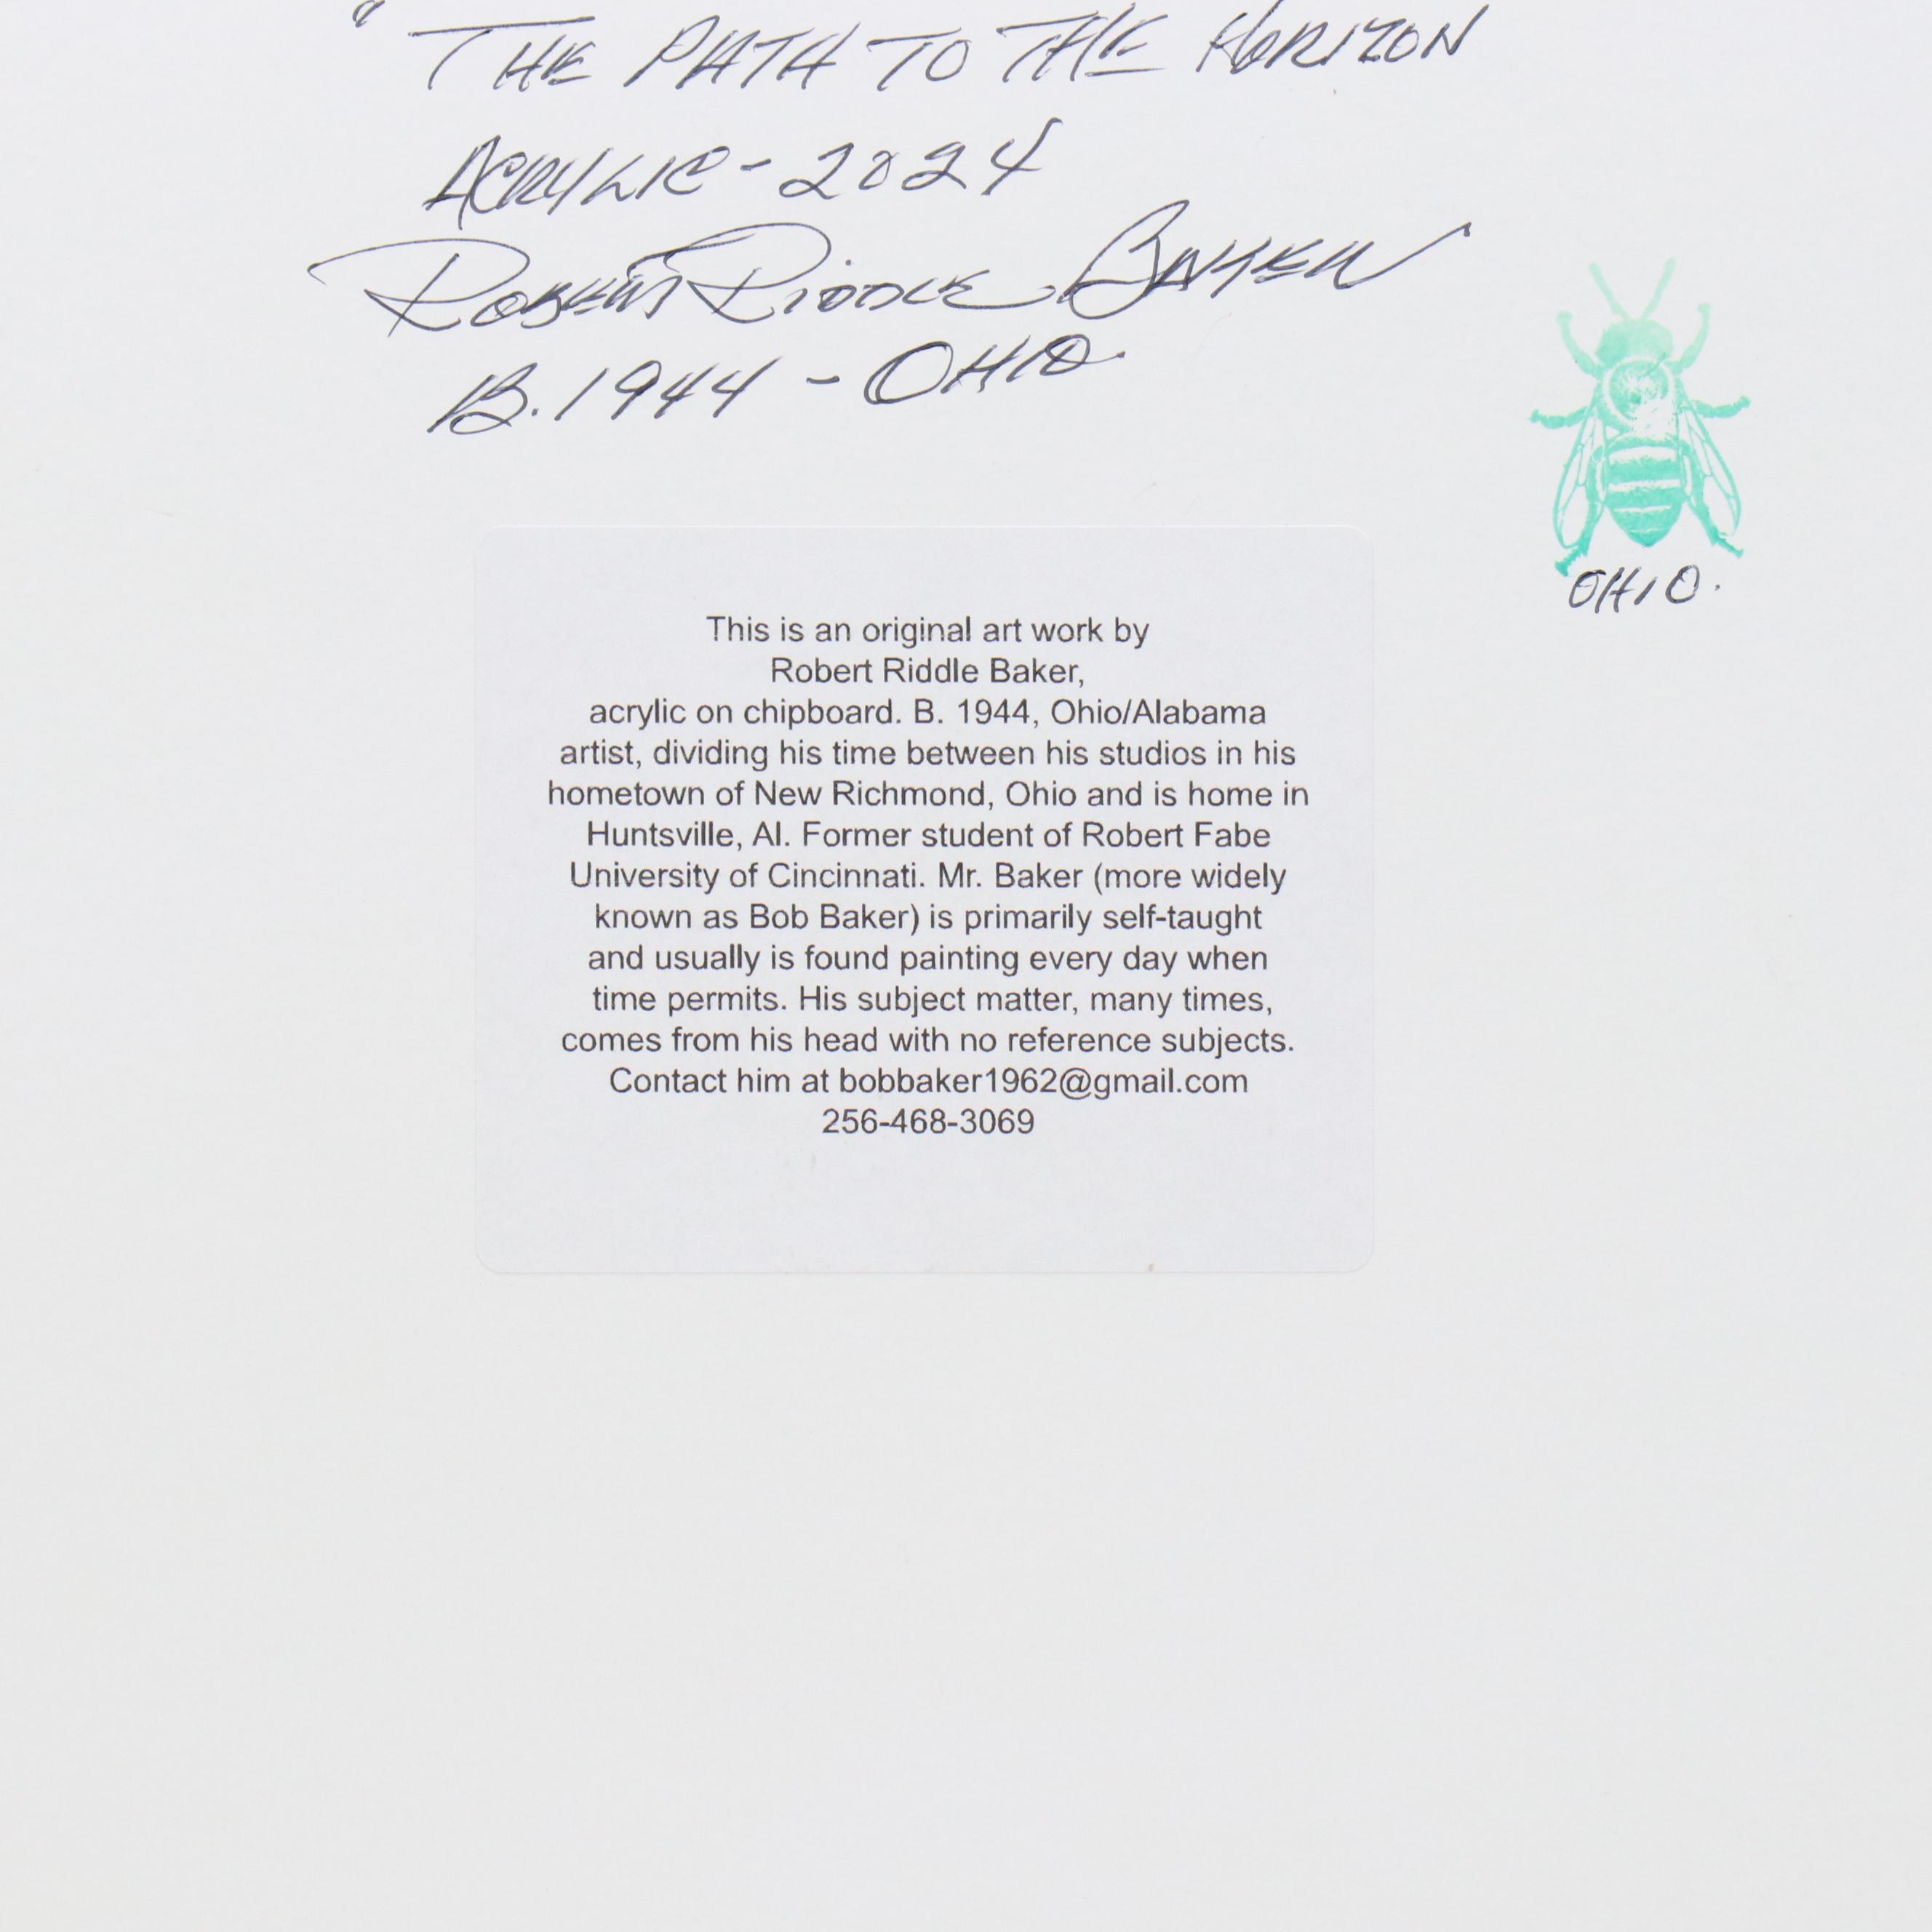 " THE PATH TO THE HORIZON
ACRYLIC - 2024
ROBERT RIDDLE BAKER
B. 1944 - OHIO.
OHIO.
This is an original art work by
Robert Riddle Baker,
acrylic on chipboard. B. 1944, Ohio/Alabama
artist, dividing his time between his studios in his
hometown of New Richmond, Ohio and is home in
Huntsville, Al. Former student of Robert Fabe
University of Cincinnati. Mr. Baker (more widely
known as Bob Baker) is primarily self-taught
and usually is found painting every day when
time permits. His subject matter, many times,
comes from his head with no reference subjects.
Contact him at bobbaker1962@gmail.com
256-468-3069